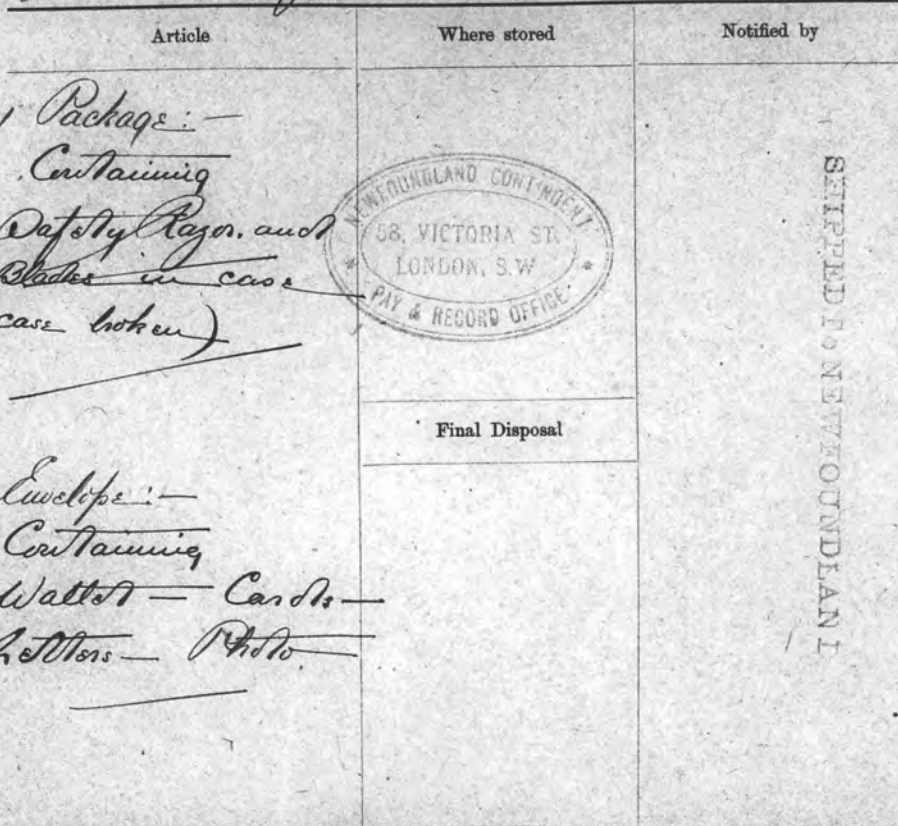 Article
Where stored
Notified by
1 Package:—
Containing
Safety Razor. and
Blades in case
case broken)
NEWFOUNDLAND CONTINGENT
58, VICTORIA ST.
LONDON, S.W
PAY & RECORD OFFICE
Final Disposal
Envelope:—
Containing
Wallet — Cards —
Letters — Photo
SHIPPED To NEWFOUNDLAND